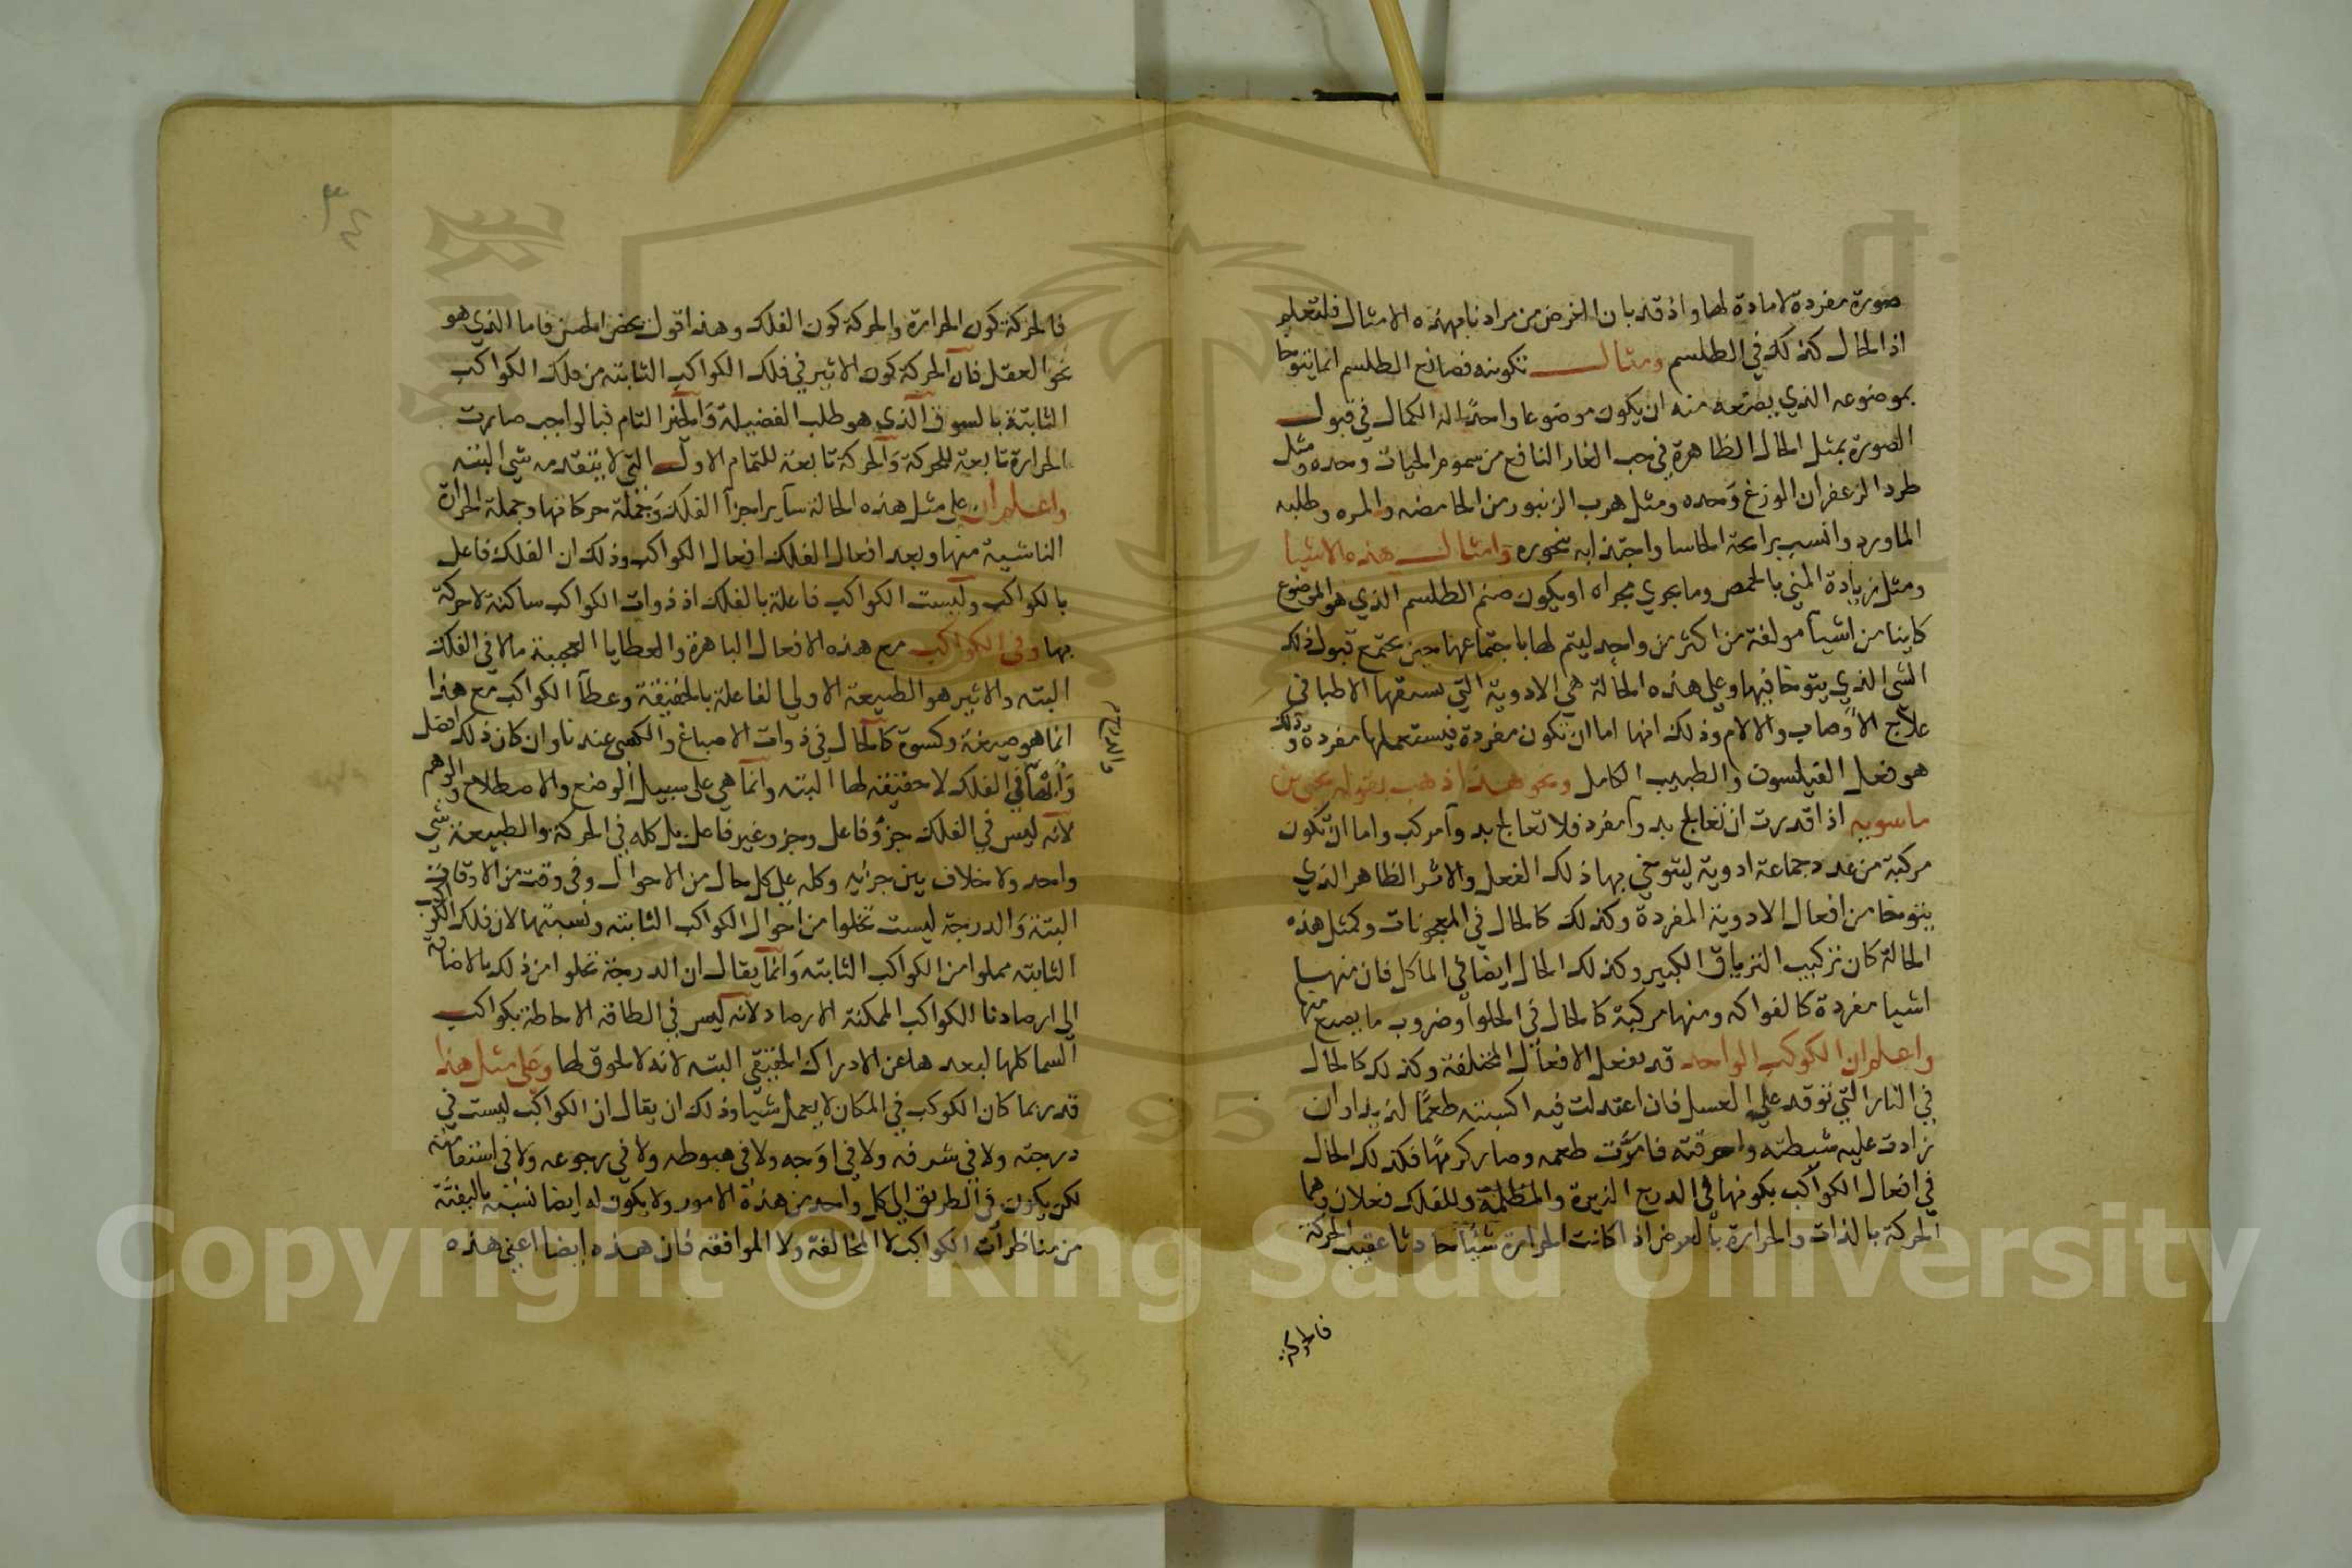 صورة مفردة لا مادة لها واذ قد بان الغرض من مرادنا بهذه الامثال فلتعلم
اذ الحال كذلك في الطلسم ومثال تكوينه فصانع الطلسم انما يتوخا
بموضوعه الذي يصنعه منه ان يكون موضوعا واحدا له الكمال في قبول
الصورة بمثل الحال الظاهرة في حب الغار النافع من سموم الحيات وحده ومثل
طرد الزعفران الوزغ وحده ومثل هرب الزنبور من الحامضه والمره وطلبه
الماورد وانسب برايحة الحاسا واجتذابه بخوره وامثال هذه الاشيا
ومثل زيادة المني بالحمص وما يجري مجراه او يكون صنم الطلسم الذي هو الموضوع
كاينا من اشيا مولفة من اكثر من واحد ليتم لها باجتماعها حين يجتمع قبول ذلك
الشي الذي يتوخا فيها وعلى هذه الحالة هي الادوية التي يسقها الاطبا في
علاج الاوصاب والالام وذلك انها اما ان تكون مفردة فيستعملها مفردة وذلك
هو فعل الفيلسوف والطبيب الكامل ونحو هذا ذهب بقوله يحيى بن
ماسويه اذا قدرت ان تعالج بدوآ مفرد فلا تعالج بدوآ مركب واما ان تكون
مركبة من عدد جماعة ادوية ليتوخي بها ذلك الفعل والاثر الظاهر الذي
يتوخا من افعال الادوية المفردة وكذلك كالحال في المعجونات وكمثل هذه
الحالة كان تركيب الترياق الكبير وكذلك الحال ايضا في الماكل فان منها
اشيا مفردة كالفواكه ومنها مركبة كالحال في الحلوآ وضروب ما يصنع منها
واعلم ان الكوكب الواحد قد يفعل الافعال المختلفة وكذلك كالحال
في النار التي توقد علي العسل فان اعتدلت فيه اكسبته طعما لذيذا وان
زادت عليه شيطته واحرقته فامرّت طعمه وصار كريها فكذلك الحال
في افعال الكواكب بكونها في الدرج النيرة والمظلمة وللفلك فعلان وهما
الحركة بالذات والحرارة بالعرض اذا كانت الحرارة شيئا حادثا عقيب الحركة
فالحركة
٣٤
فالحركة كون الحرارة والحركة كون الفلك وهذا قول محض الحسن فاما الذي هو
نحو العقل فان الحركة كون الاثير في فلك الكواكب الثابته من فلك الكواكب
الثابتة بالسوق الذي هو طلب الفضيلة والخير التام فبالواجب صارت
الحرارة تابعة للحركة والحركة تابعة للتمام الاول التي لا يتقدمه شي البته
واعلم ان على مثل هذه الحالة ساير اجزآ الفلك وجملة حركاتها وجملة الحرارة
الناشية منها وبعد افعال الفلك افعال الكواكب وذلك ان الفلك فاعل
بالكواكب وليست الكواكب فاعلة بالفلك اذ ذوات الكواكب ساكنة لا حركة
بها وفي الكواكب مع هذه الافعال الباهرة والعطايا العجيبة ما لا في الفلك
البته والاثير هو الطبيعة الاولي الفاعلة بالحقيقة وعطآ الكواكب مع هذا
انما هو صبغة وكسوة كالحال في ذوات الاصباغ والكسى عندنا وان كان ذلك افضل
والدرج
وانها في الفلك لا حقيقه لها البته وانما هي على سبيل الوضع والاصطلاح والوهم
لانه ليس في الفلك جزؤ فاعل وجزو غير فاعل بل كله في الحركة والطبيعة شي
واحد ولا خلاف بين جزايه وكله على كل حال من الاحوال وفي وقت من الاوقات
البتة والدرجة ليست تخلوا من احوال الكواكب الثابته ونسبتها لان فلك الكواكب
الثابته مملوا من الكواكب الثابته وانما يقال ان الدرجة تخلوا من ذلك بالاضافة
الى ارصادنا الكواكب الممكنة الارصاد لانه ليس في الطاقه الاحاطة بكواكب
السما كلها لبعدها عن الادراك الحقيقي البته لانه لا لحوق لها وعلى مثل هذا
قد ربما كان الكوكب في المكان لا يعمل شيا وذلك ان يقال ان الكواكب ليست في
درجته ولا في شرفه ولا في اوجه ولا في هبوطه ولا في رجوعه ولا في استقامته
لكن يكون في الطريق الي كل واحد من هذه الامور ولا يكون له ايضا نسبة
من مناظرات الكواكب لا المخالفة ولا الموافقه فان هذه ايضا اعني هذه
Copyright © King Saud University
1957